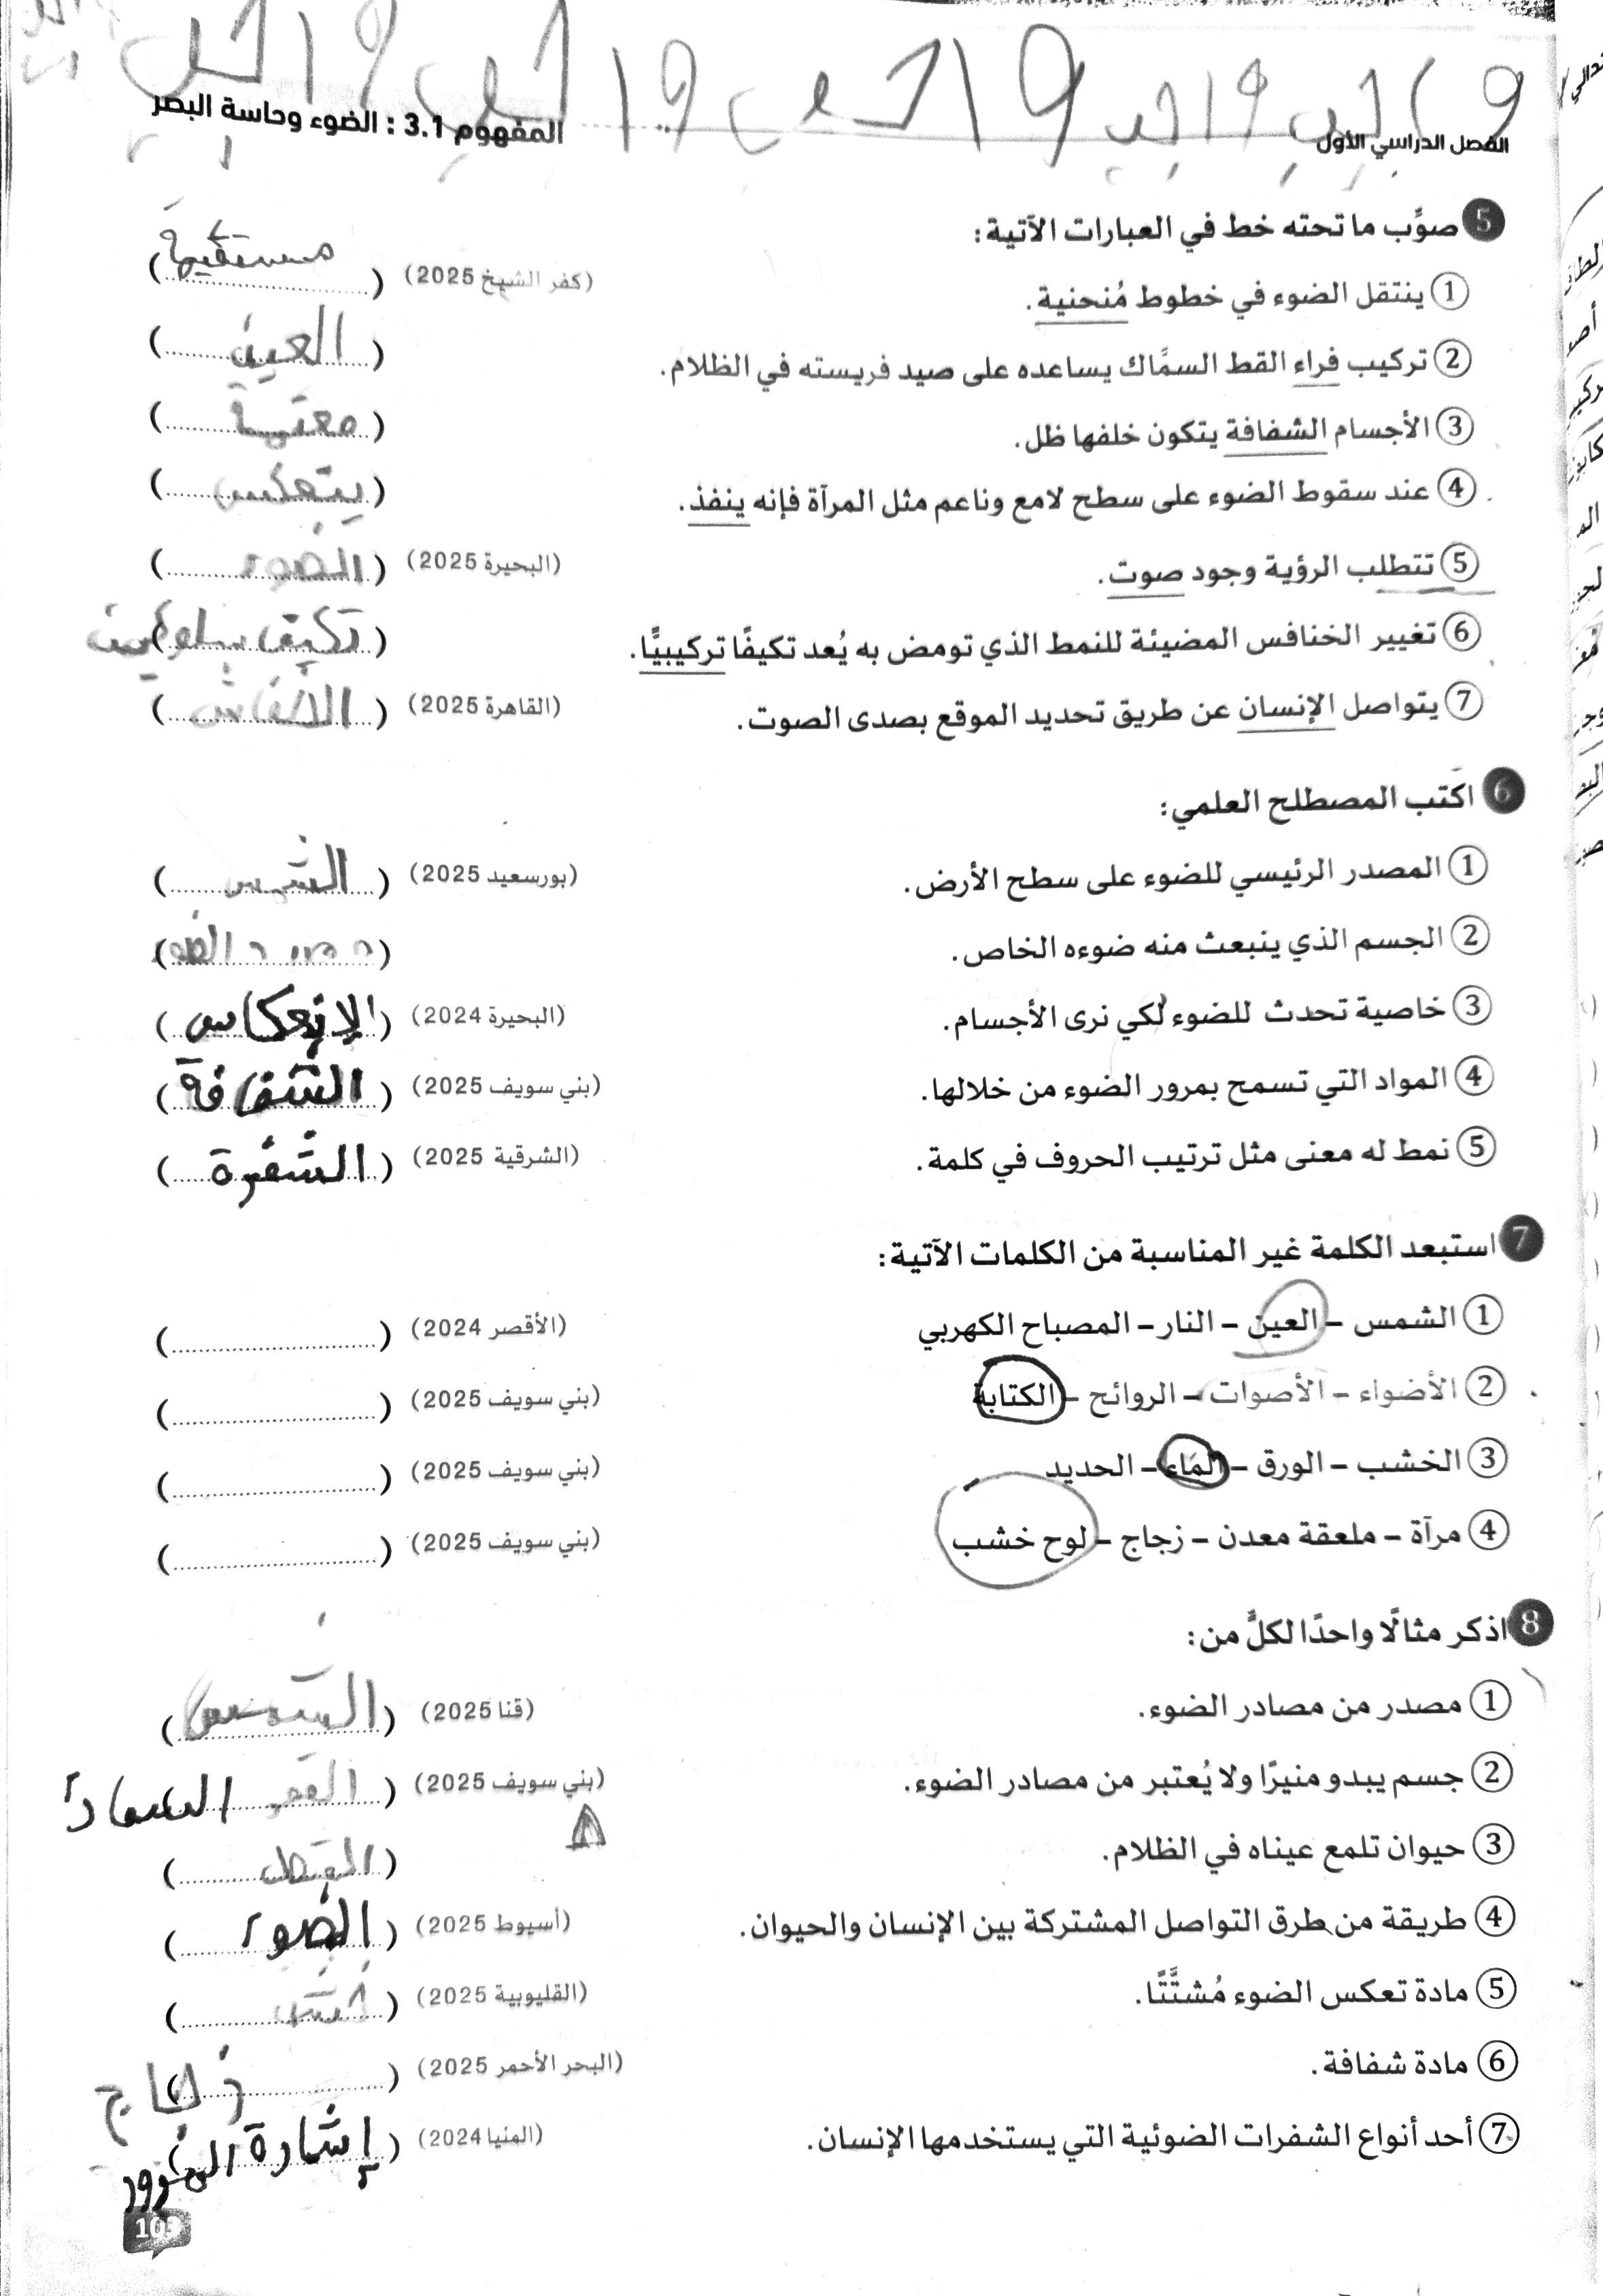 و اجب و اجب و احب و احب و احب
الفصل الدراسي الأول
المفهوم 3.1 : الضوء وحاسة البصر
5 صوِّب ما تحته خط في العبارات الآتية:
1 ينتقل الضوء في خطوط مُنحنية. (كفر الشيخ 2025) (مستقيمة)
2 تركيب فراء القط السمَّاك يساعده على صيد فريسته في الظلام. (العين)
3 الأجسام الشفافة يتكون خلفها ظل. (معتمة)
4 عند سقوط الضوء على سطح لامع وناعم مثل المرآة فإنه ينفذ. (ينعكس)
5 تتطلب الرؤية وجود صوت. (البحيرة 2025) (الضوء)
6 تغيير الخنافس المضيئة للنمط الذي تومض به يُعد تكيفًا تركيبيًّا. (تكيف)
7 يتواصل الإنسان عن طريق تحديد الموقع بصدى الصوت. (القاهرة 2025) (الخفاش)
6 اكتب المصطلح العلمي:
1 المصدر الرئيسي للضوء على سطح الأرض. (بورسعيد 2025) (الشمس)
2 الجسم الذي ينبعث منه ضوءه الخاص. (مصدر الضوء)
3 خاصية تحدث للضوء لكي نرى الأجسام. (البحيرة 2024) (الإنعكاس)
4 المواد التي تسمح بمرور الضوء من خلالها. (بني سويف 2025) (الشفافة)
5 نمط له معنى مثل ترتيب الحروف في كلمة. (الشرقية 2025) (الشفرة)
7 استبعد الكلمة غير المناسبة من الكلمات الآتية:
1 الشمس – العين – النار – المصباح الكهربي (الأقصر 2024) (............)
2 الأضواء – الأصوات – الروائح – الكتابة (بني سويف 2025) (............)
3 الخشب – الورق – الماء – الحديد (بني سويف 2025) (............)
4 مرآة – ملعقة معدن – زجاج – لوح خشب (بني سويف 2025) (............)
8 اذكر مثالًا واحدًا لكلٍّ من:
1 مصدر من مصادر الضوء. (قنا 2025) (الشمس)
2 جسم يبدو منيرًا ولا يُعتبر من مصادر الضوء. (بني سويف 2025) (القمر)
3 حيوان تلمع عيناه في الظلام. (القط)
4 طريقة من طرق التواصل المشتركة بين الإنسان والحيوان. (أسيوط 2025) (الضوء)
5 مادة تعكس الضوء مُشتَّتًا. (القليوبية 2025) (خشب)
6 مادة شفافة. (البحر الأحمر 2025) (زجاج)
7 أحد أنواع الشفرات الضوئية التي يستخدمها الإنسان. (المنيا 2024) (إشارة المرور)
103